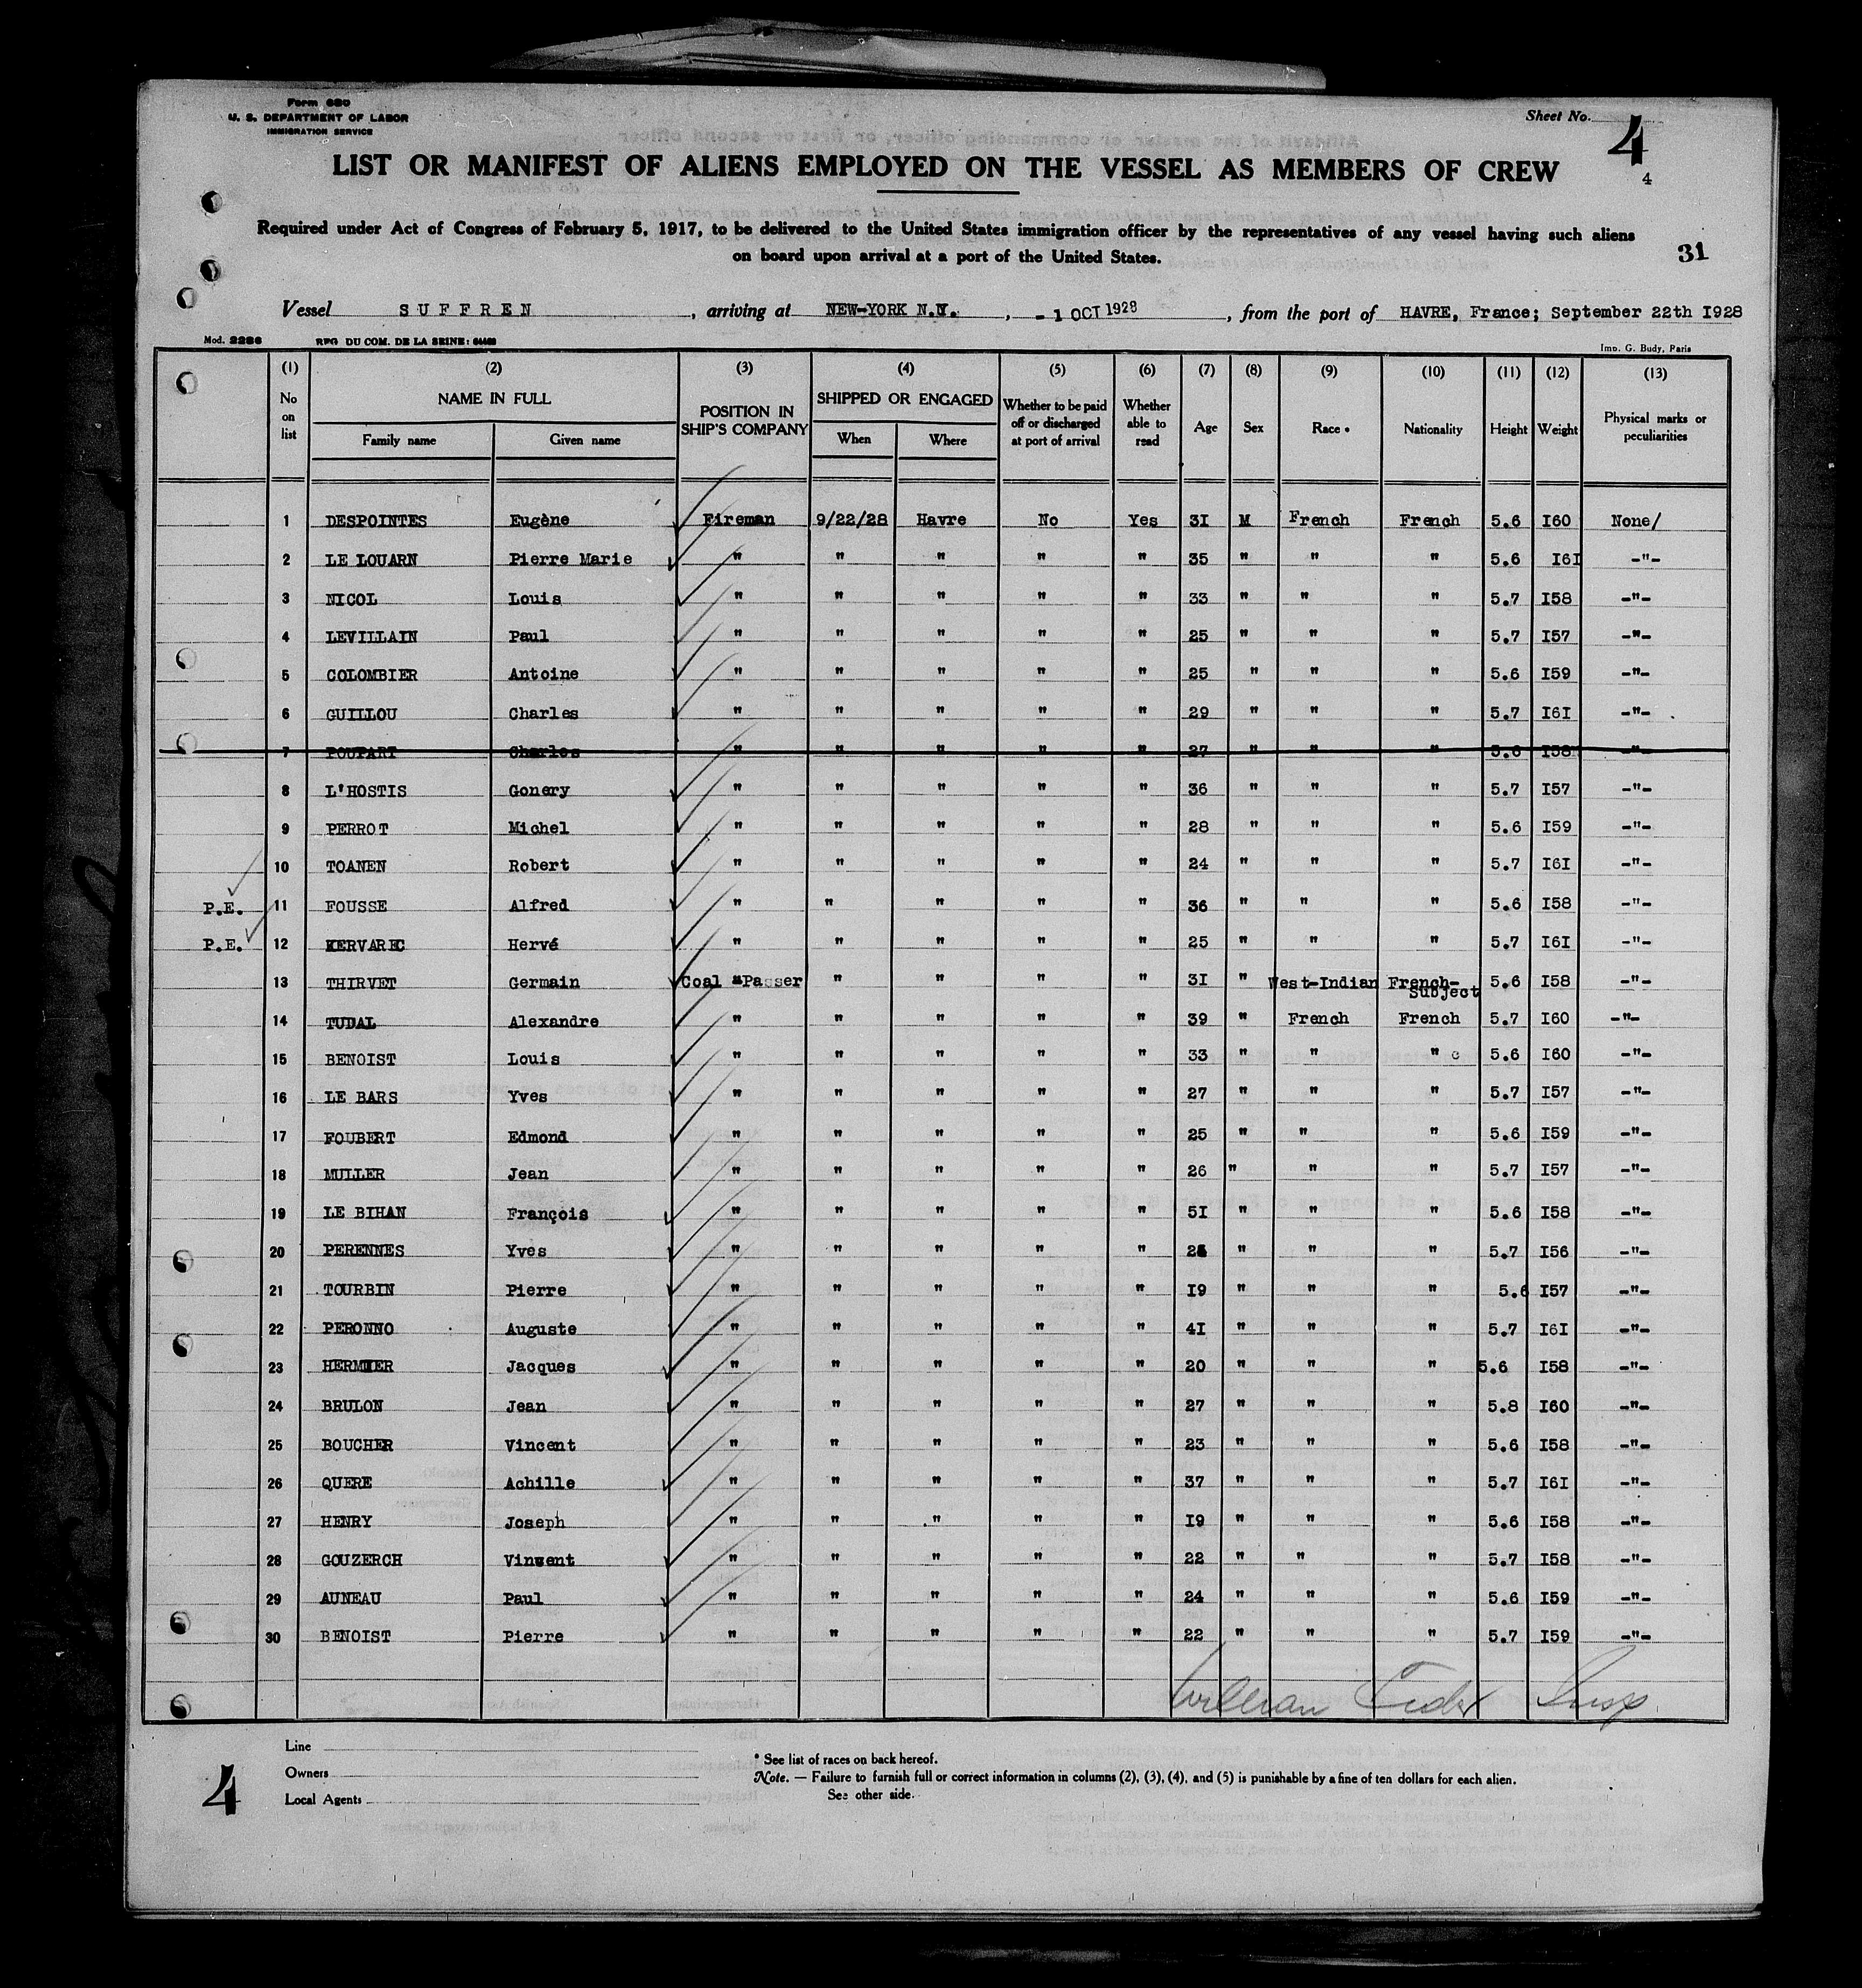 Form 680
U. S. DEPARTMENT OF LABOR
IMMIGRATION SERVICE
Sheet No. 4
4
LIST OR MANIFEST OF ALIENS EMPLOYED ON THE VESSEL AS MEMBERS OF CREW
Required under Act of Congress of February 5, 1917, to be delivered to the United States immigration officer by the representatives of any vessel having such aliens
on board upon arrival at a port of the United States.
31
Vessel SUFFREN , arriving at NEW-YORK N.Y. , - 1 OCT 1928 , from the port of HAVRE, France; September 22th I928
Mod. 2286 REG DU COM. DE LA SEINE: Imp. G. Budy, Paris
(1) (2) (3) (4) (5) (6) (7) (8) (9) (10) (11) (12) (13)
No on list NAME IN FULL Family name Given name POSITION IN SHIP'S COMPANY SHIPPED OR ENGAGED When Where Whether to be paid off or discharged at port of arrival Whether able to read Age Sex Race • Nationality Height Weight Physical marks or peculiarities
1 DESPOINTES Eugène Fireman 9/22/28 Havre No Yes 3I M French French 5.6 I60 None/
2 LE LOUARN Pierre Marie " " " " " 35 " " " 5.6 I6I -"-
3 NICOL Louis " " " " " 33 " " " 5.7 I58 -"-
4 LEVILLAIN Paul " " " " " 25 " " " 5.7 I57 -"-
5 COLOMBIER Antoine " " " " " 25 " " " 5.6 I59 -"-
6 GUILLOU Charles " " " " " 29 " " " 5.7 I6I -"-
7 POUPART Charles " " " " " 27 " " " 5.6 I58 -"-
8 L'HOSTIS Gonery " " " " " 36 " " " 5.7 I57 -"-
9 PERROT Michel " " " " " 28 " " " 5.6 I59 -"-
10 TOANEN Robert " " " " " 24 " " " 5.7 I6I -"-
P.E. 11 FOUSSE Alfred " " " " " 36 " " " 5.6 I58 -"-
P.E. 12 KERVAREC Hervé " " " " " 25 " " " 5.7 I6I -"-
13 THIRVET Germain Coal Passer " " " " 3I " West-Indian French-Subject 5.6 I58 -"-
14 TUDAL Alexandre " " " " " 39 " French French 5.7 I60 -"-
15 BENOIST Louis " " " " " 33 " " " 5.6 I60 -"-
16 LE BARS Yves " " " " " 27 " " " 5.7 I57 -"-
17 FOUBERT Edmond " " " " " 25 " " " 5.6 I59 -"-
18 MULLER Jean " " " " " 26 " " " 5.7 I57 -"-
19 LE BIHAN François " " " " " 5I " " " 5.6 I58 -"-
20 PERENNES Yves " " " " " " " " 5.7 I56 -"-
21 TOURBIN Pierre " " " " " I9 " " " 5.6 I57 -"-
22 PERONNO Auguste " " " " " 4I " " " 5.7 I6I -"-
23 HERMIER Jacques " " " " " 20 " " " 5.6 I58 -"-
24 BRULON Jean " " " " " 27 " " " 5.8 I60 -"-
25 BOUCHER Vincent " " " " " 23 " " " 5.6 I58 -"-
26 QUERE Achille " " " " " 37 " " " 5.7 I6I -"-
27 HENRY Joseph " " " " " I9 " " " 5.6 I58 -"-
28 GOUZERCH Vincent " " " " " 22 " " " 5.7 I58 -"-
29 AUNEAU Paul " " " " " 24 " " " 5.6 I59 -"-
30 BENOIST Pierre " " " " " 22 " " " 5.7 I59 -"-
William Insp.
Line
Owners
Local Agents
4
* See list of races on back hereof.
Note. — Failure to furnish full or correct information in columns (2), (3), (4), and (5) is punishable by a fine of ten dollars for each alien.
See other side.